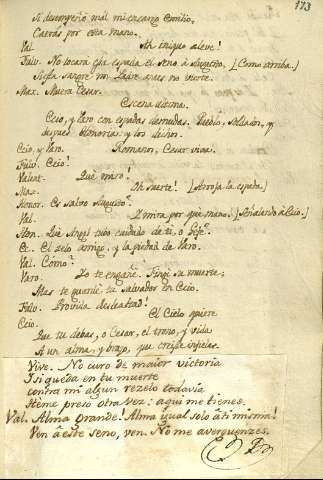 173
Si desempeño mal mi encargo Emilio,
Caerás por esta mano.
Val. Ah inique aleve!
Fulv. No tocará esta espada el seno a Augusto. [Como arriba.]
Si esta sangre mi Padre antes no vierte.
Max. Muera Cesar.
Escena decima.
Ecio, y Varo con espadas desnudas. Pueblo, Soldados, y
despues Honorias: y los dichos.
Ecio, y Varo. Romanos, Cesar viva.
Fulv. Ecio!
Valent. Què miro!
Max. Oh suerte! [Arroja la espada.]
Honor. Es salvo Augusto?
Val. I mira por què mano. [Señalando à Ecio.]
Hon. Què Angel tuvo cuidado de ti, o Gefe?
Ec. El zelo amigo, y la piedad de Varo.
Val. Como?
Varo. Yo te engañé. Fingí su muerte;
Mas te guardé tu salvador en Ecio.
Fulv. Provida deslealtad!
Ecio. El Cielo quiere
Que tu debas, o Cesar, el trono, y vida
A un alma, y brazo, que creiste infieles.
Vive. No curo de maior victoria
I si queda en tu muerte
contra mi algun rezelo todavia
Heme preso otra vez: aqui me tienes.
Val. Alma grande! Alma igual solo à ti misma!
Ven à este seno, ven. No me averguenzes.